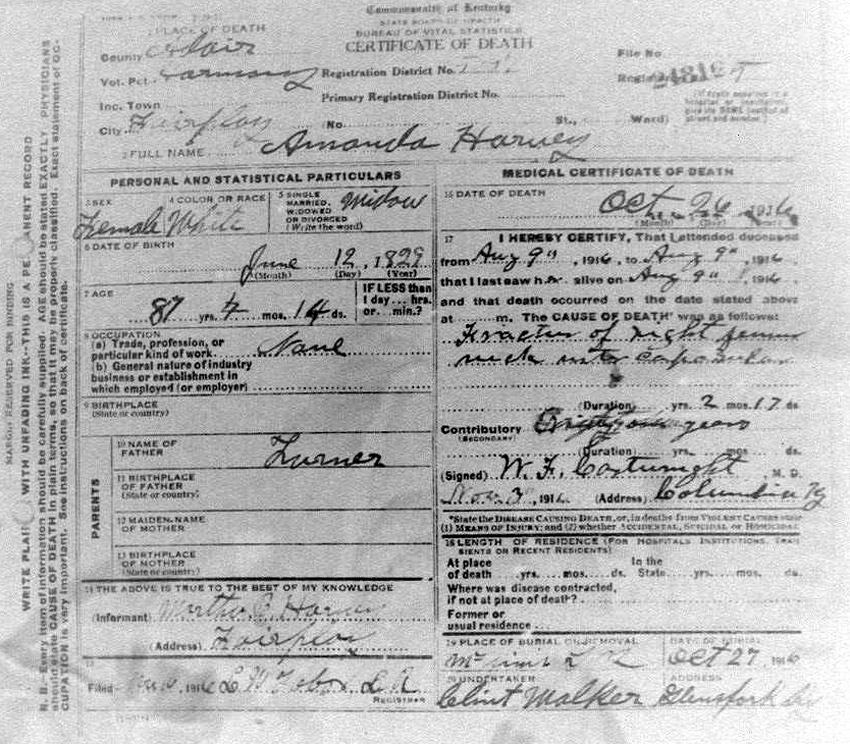 Commonwealth of Kentucky
STATE BOARD OF HEALTH
BUREAU OF VITAL STATISTICS
CERTIFICATE OF DEATH
PLACE OF DEATH
County Adair
Vot. Pct. Harmony
Inc. Town
City Fairplay
Registration District No.
Primary Registration District No.
(No. St., Ward)
File No
Registered
2 FULL NAME Amanda Harvey
PERSONAL AND STATISTICAL PARTICULARS
3 SEX Female
4 COLOR OR RACE White
5 SINGLE MARRIED, WIDOWED OR DIVORCED (Write the word) Widow
6 DATE OF BIRTH June 12, 1829
(Month) (Day) (Year)
7 AGE 87 yrs. 4 mos. 14 ds.
IF LESS than 1 day... hrs. or... min.?
8 OCCUPATION
(a) Trade, profession, or particular kind of work None
(b) General nature of industry business or establishment in which employed (or employer)
9 BIRTHPLACE
(State or country)
PARENTS
10 NAME OF FATHER Turner
11 BIRTHPLACE OF FATHER
(State or country)
12 MAIDEN NAME OF MOTHER
13 BIRTHPLACE OF MOTHER
(State or country)
14 THE ABOVE IS TRUE TO THE BEST OF MY KNOWLEDGE
(Informant) Harvey
(Address) Fairplay
15
Filed 1916
REGISTRAR
MEDICAL CERTIFICATE OF DEATH
16 DATE OF DEATH Oct 26 1916
(Month) (Day) (Year)
17 I HEREBY CERTIFY, That I attended deceased
from Aug 9", 1916, to Aug 9", 1916
that I last saw her alive on Aug 9" 1916.
and that death occurred on the date stated above
at m. The CAUSE OF DEATH* was as follows:
Fracture of right femur
neck
(Duration) yrs. 2 mos. 17 ds
Contributory years
(SECONDARY)
(Duration) yrs. mos. ds.
(Signed) W. F. Cartwright M. D.
Nov 3, 1916 (Address) Columbia Ky
*State the DISEASE CAUSING DEATH, or, in deaths from VIOLENT CAUSES state
(1) MEANS OF INJURY; and (2) whether ACCIDENTAL, SUICIDAL or HOMICIDAL
18 LENGTH OF RESIDENCE (FOR HOSPITALS, INSTITUTIONS, TRANSIENTS OR RECENT RESIDENTS)
At place of death yrs. mos. ds. In the State yrs. mos. ds.
Where was disease contracted, if not at place of death?
Former or usual residence
19 PLACE OF BURIAL OR REMOVAL
DATE OF BURIAL
Oct 27 1916
20 UNDERTAKER
ADDRESS
Clint Walker Glensfork Ky
MARGIN RESERVED FOR BINDING
WRITE PLAIN WITH UNFADING INK—THIS IS A PE ANENT RECORD
N. B.—Every item of information should be carefully supplied. AGE should be stated EXACTLY. PHYSICIANS
should state CAUSE OF DEATH in plain terms, so that it may be properly classified. Exact statement of OC-
CUPATION is very important. See instructions on back of certificate.